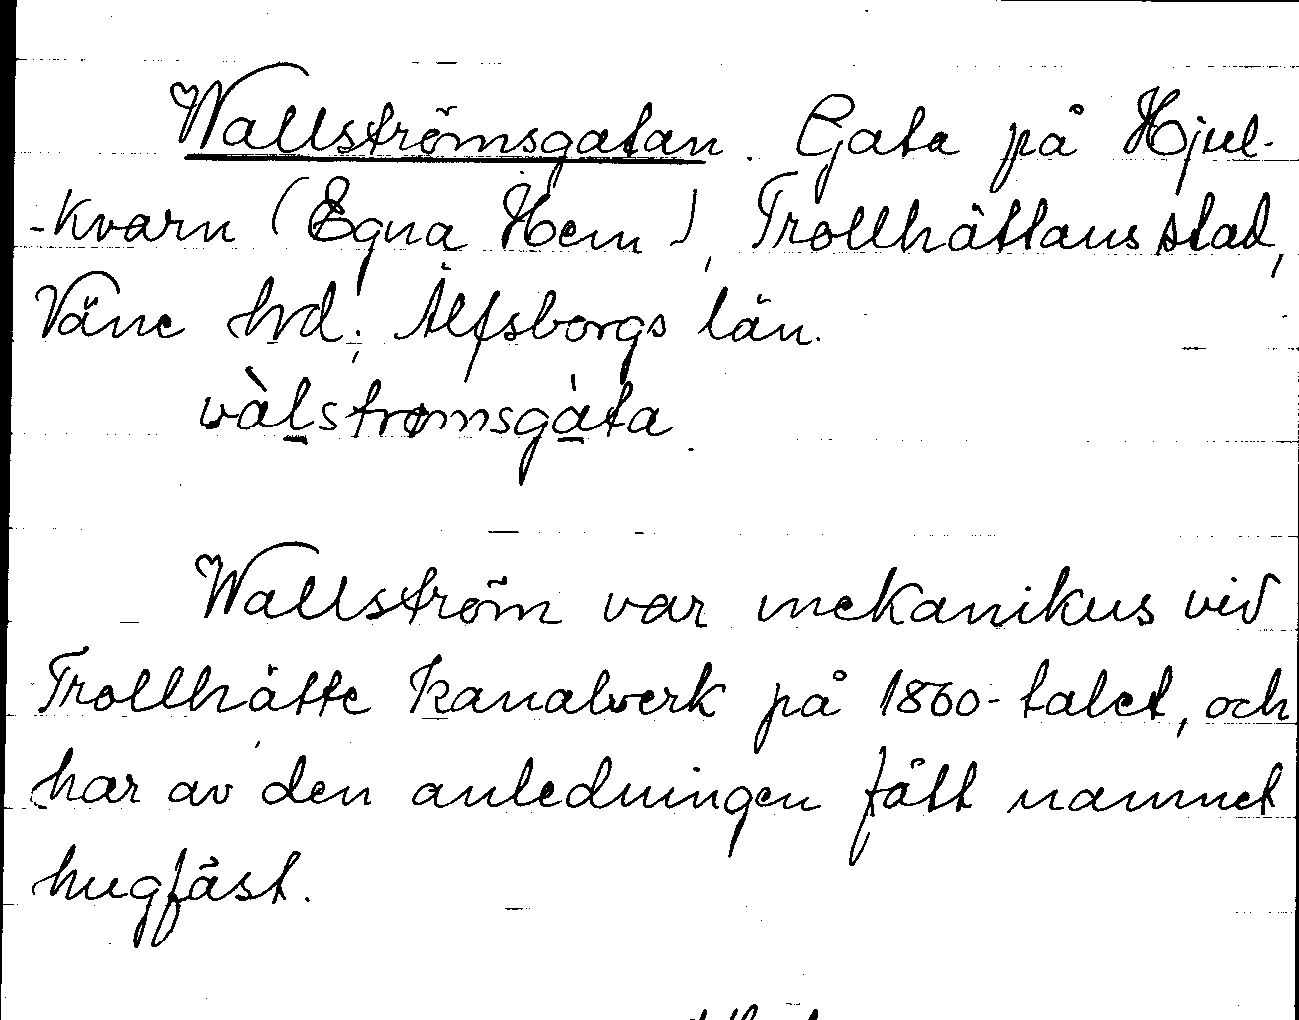 Wallströmsgatan. Gata på Hjul-
-kvarn (Egna Hem), Trollhättans stad,
Väne hrd, Älfsborgs län.
vàl̲strømsgàt̲a
Wallström var mekanikus vid
Trollhätte kanalverk på 1860-talet, och
har av den anledningen fått namnet
hugfäst.